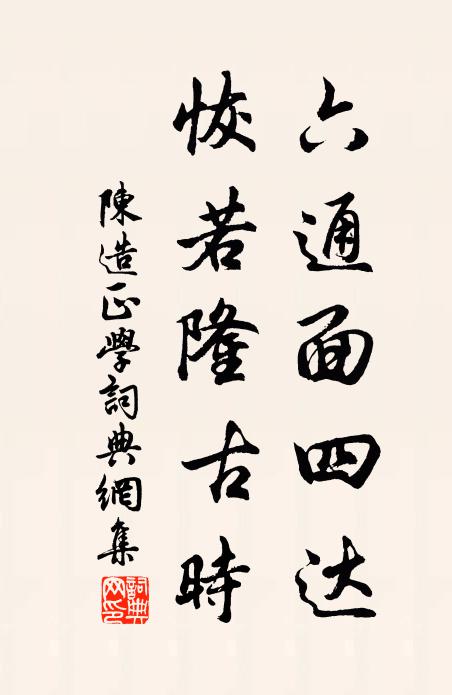 六通面四达
恢若隆古時
陳造正學詞典網集
詞典网印